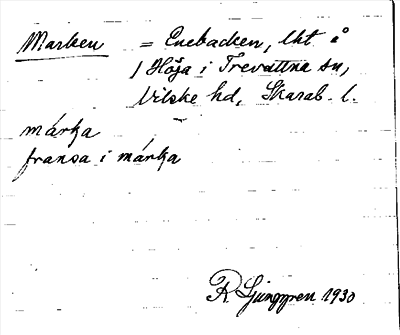 Marken = Enebacken, lht å
1 Höja i Trevattna sn,
Vilske hd, Skarab. l.
márka
fransa i márka
R Ljunggren 1930